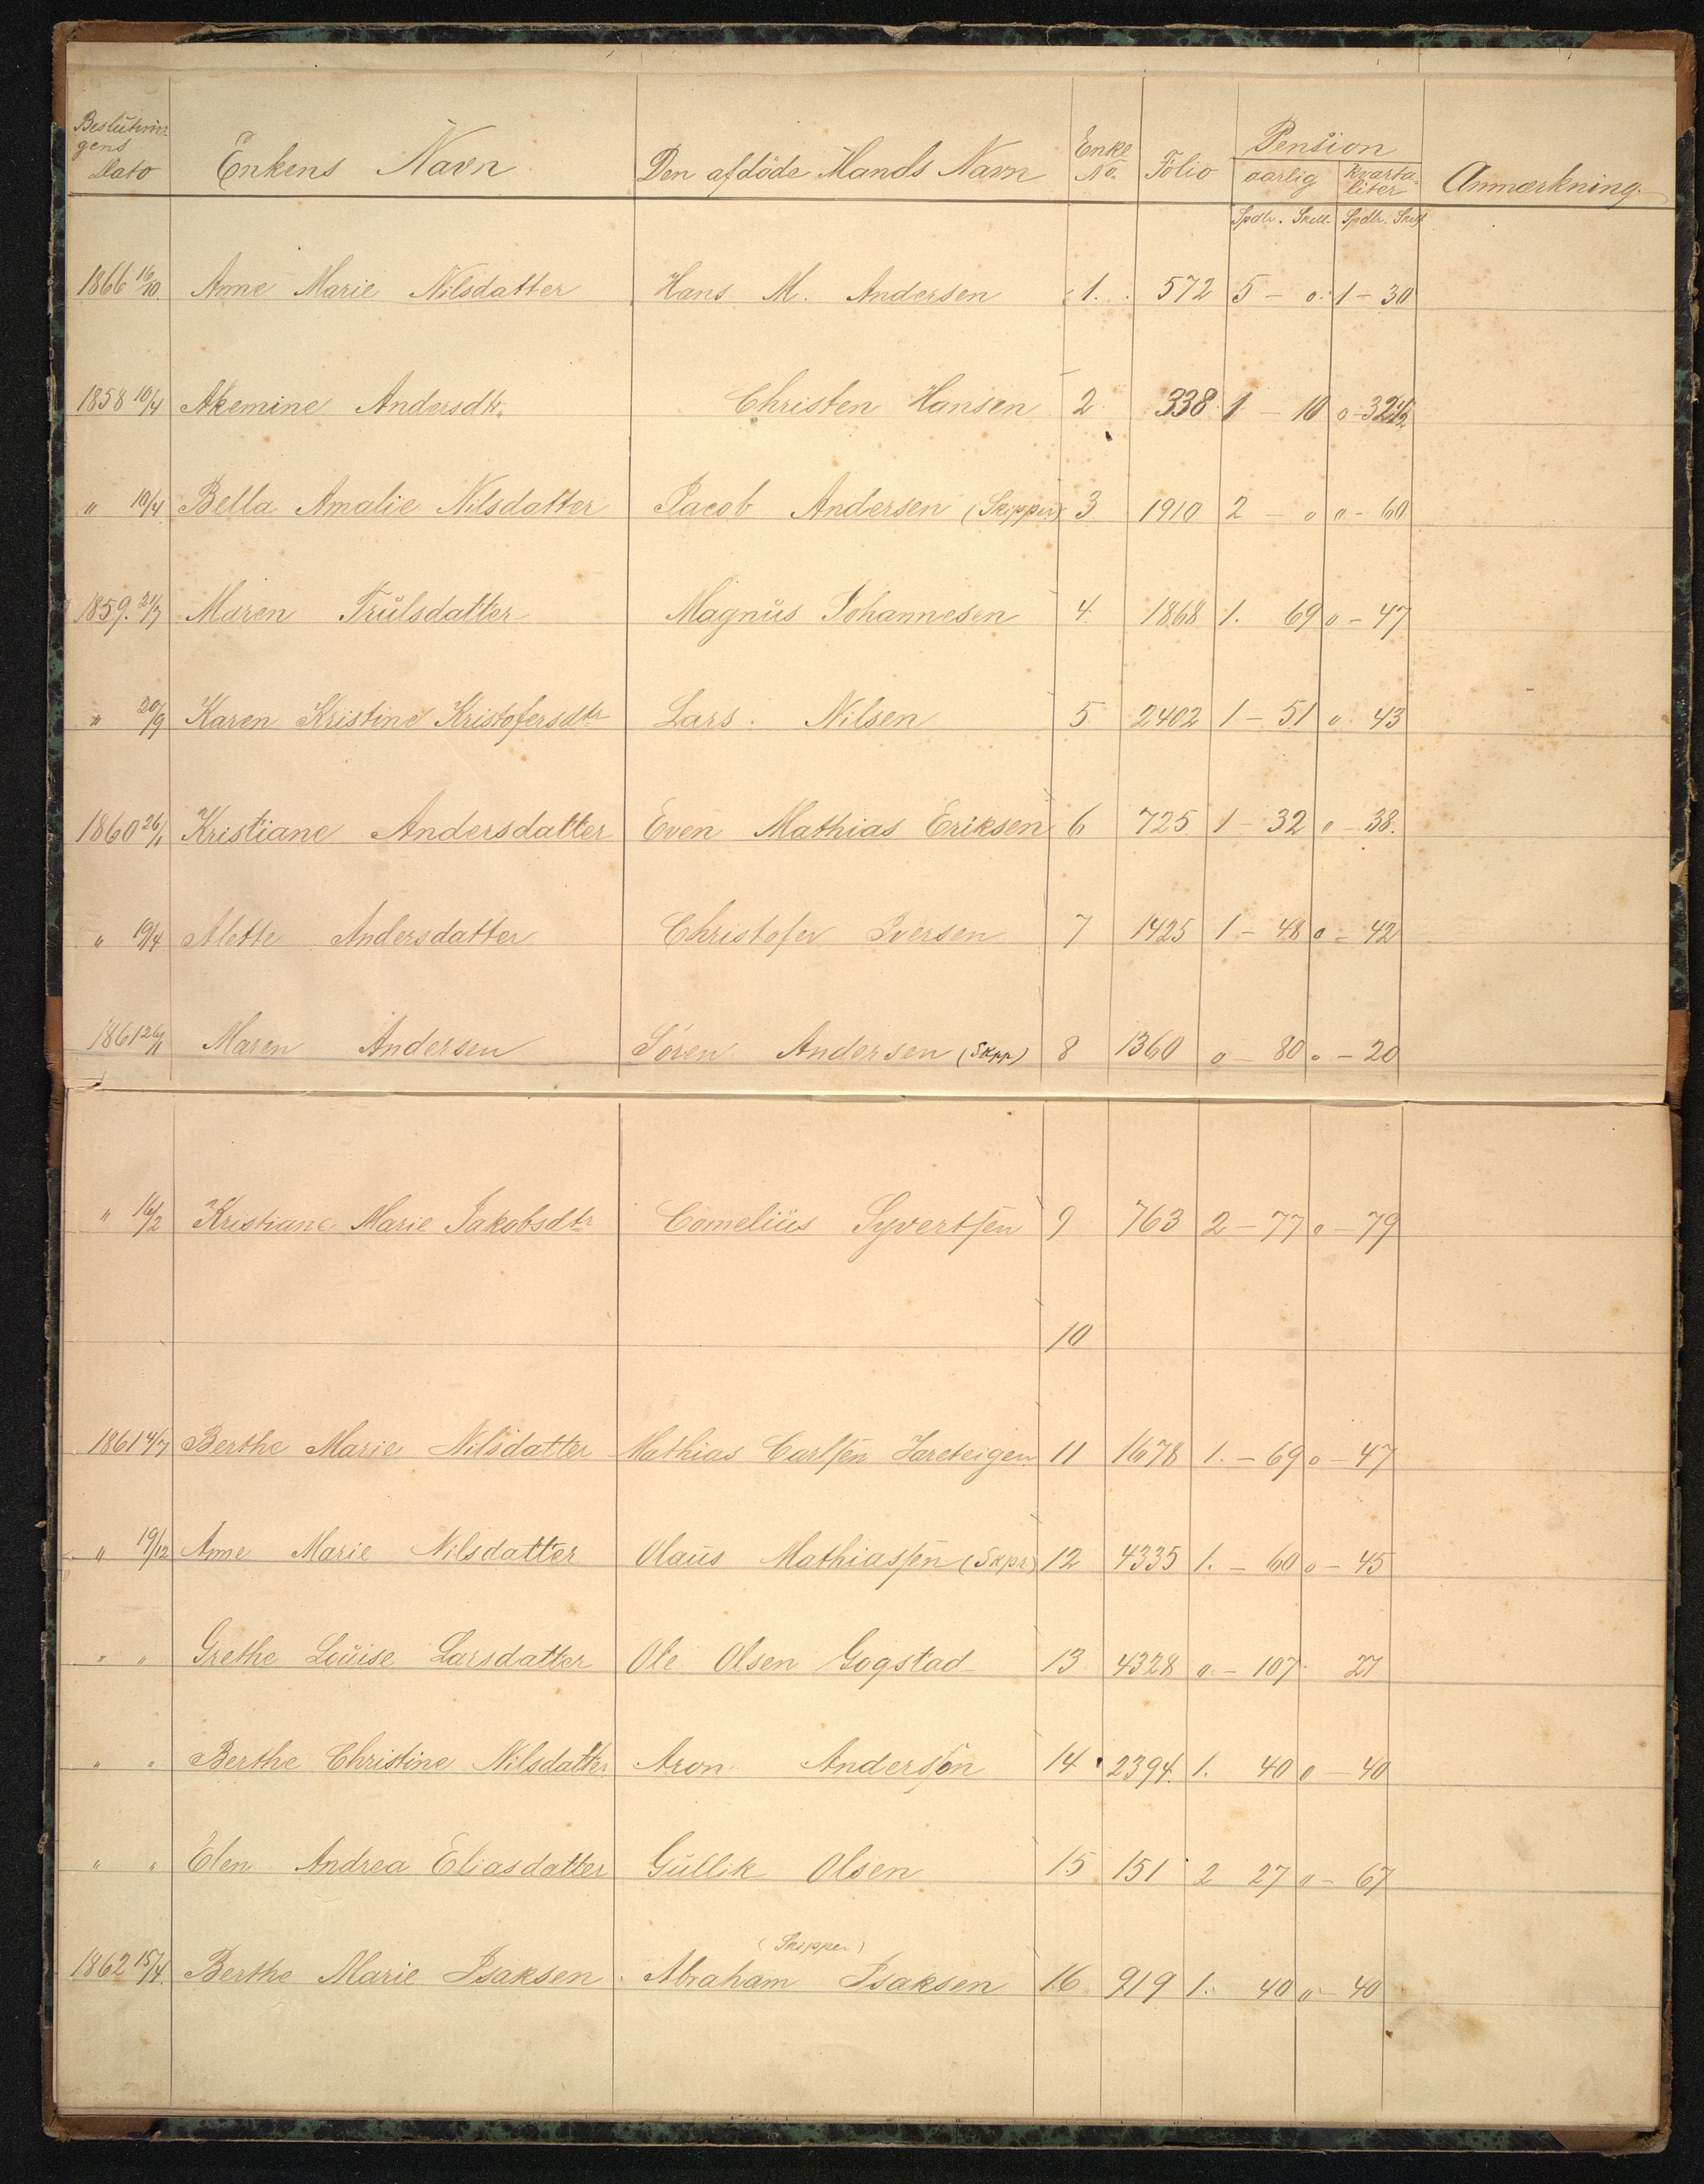 Beslutnin-
gens
Dato Enkens Navn Den afdöde Mands Navn Enke No. Folio Pension aarlig Kvarta-liter Anmærkning.
Spdlr. Skill. Spdlr. Skill
1866 16/10. Anne Marie Nilsdatter Hans M. Andersen 1. 572 5 - o. 1 - 30
1858 10/4 Akemine Andersdtr. Christen Hansen 2 338 1 - 10 o - 32 1/2
" 10/4 Bella Amalie Nilsdatter Jacob Andersen (Skipper) 3 1910 2 - o o - 60
1859. 21/7 Maren Trulsdatter Magnus Johannesen 4. 1868 1. 69 o - 47
" 20/9 Karen Kristine Kristofersdtr Lars Nilsen 5 2402 1 - 51 o 43
1860 26/1 Kristiane Andersdatter Even Mathias Eriksen 6 725 1 - 32 o - 38.
" 19/4 Alette Andersdatter Christofer Iversen 7 1425 1 - 48 o - 42
1861 26/1 Maren Andersen Sören Andersen (Skpp) 8 1360 o - 80 o - 20
" 16/2 Kristiane Marie Jakobsdtr Cornelius Syvertsen 9 763 2 - 77 o - 79
10
1861 4/7 Berthe Marie Nilsdatter Mathias Carlsen 11 1678 1. - 69 o - 47
" 19/12 Anne Marie Nilsdatter Olaus Mathiassen (Skpr) 12 4335 1. - 60 o - 45
" " Grethe Louise Larsdatter Ole Olsen Gogstad 13 4328 o - 107 27
" " Berthe Christine Nilsdatter Aron Andersen 14 2394. 1. 40 o - 40
" " Elen Andrea Eliasdatter Gullik Olsen 15 151 2 27 o - 67
(Skipper)
1862 15/4. Berthe Marie Isaksen Abraham Isaksen 16 919 1. 40 o - 40